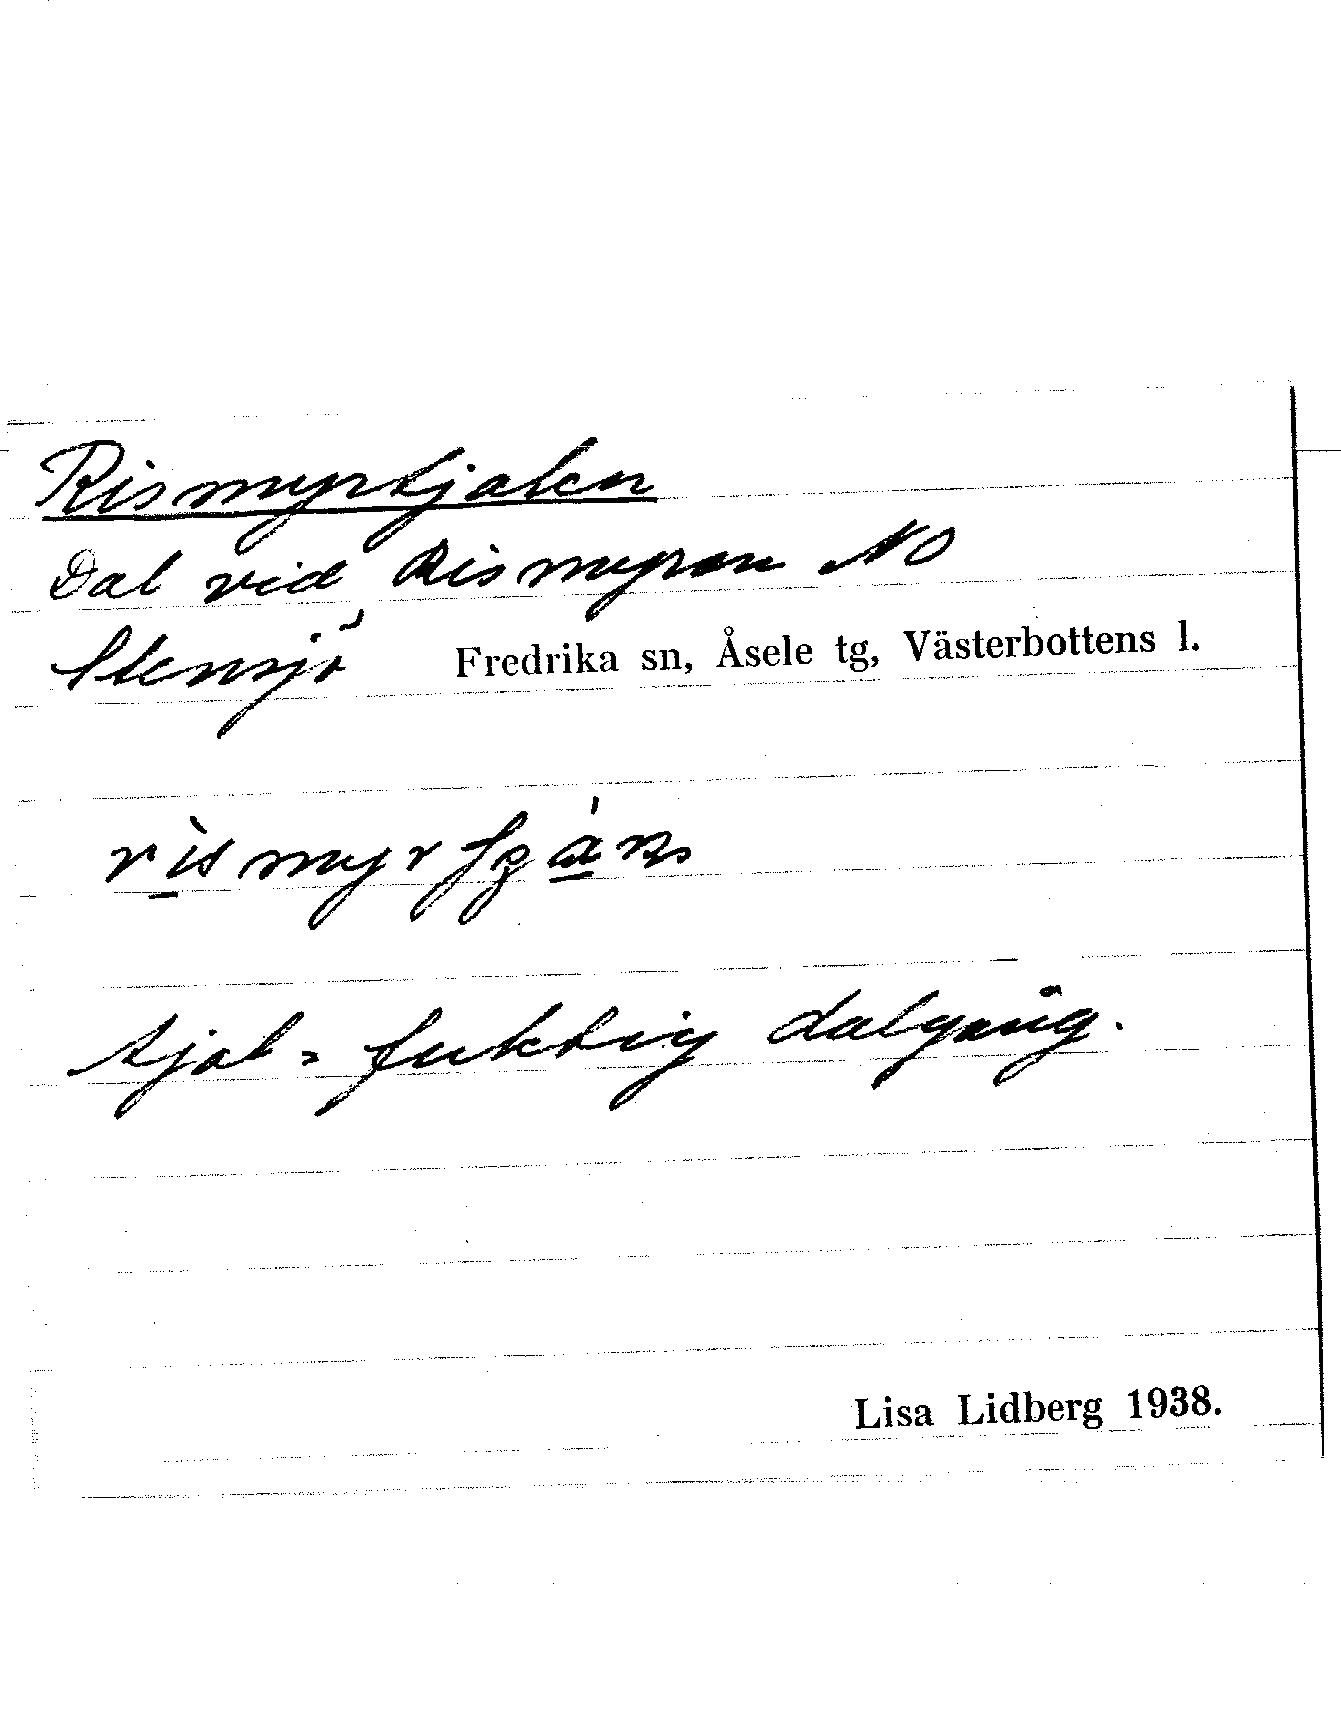 Rismyrtjalen
Dal vid Rismyran NO
Stensjö Fredrika sn, Åsele tg, Västerbottens l.
tjal = fuktig dalgång.
Lisa Lidberg 1938.